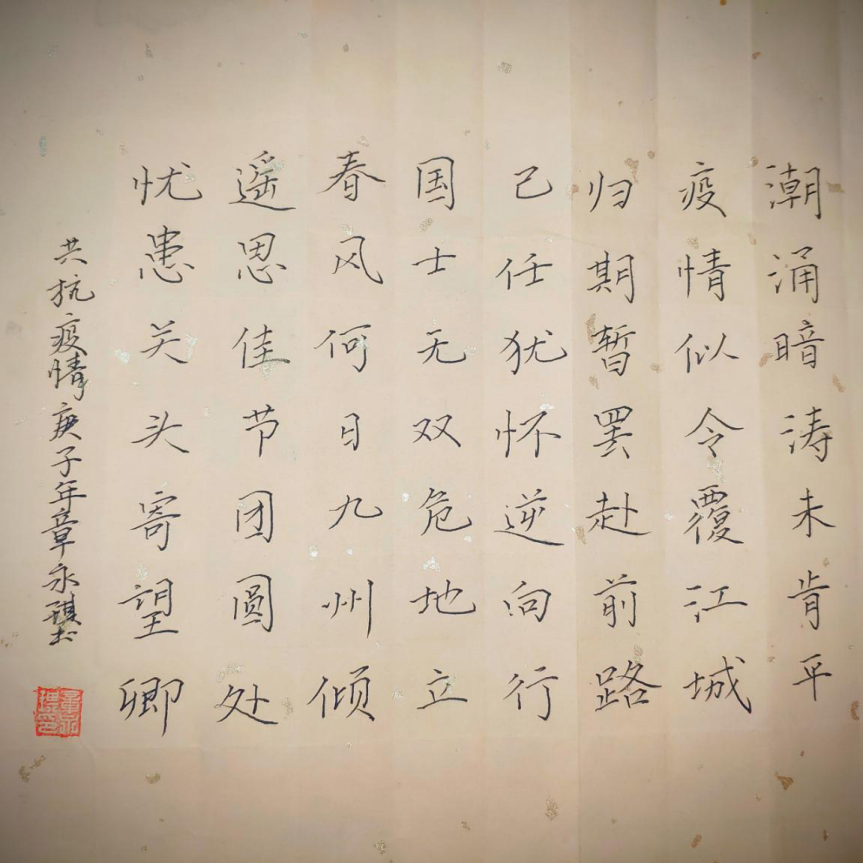 潮涌暗涛未肯平
疫情似令覆江城
归期暂罢赴前路
己任犹怀逆向行
国士无双危地立
春风何日九州倾
遥思佳节团圆处
忧患关头寄望卿
共抗疫情庚子年章永琪书